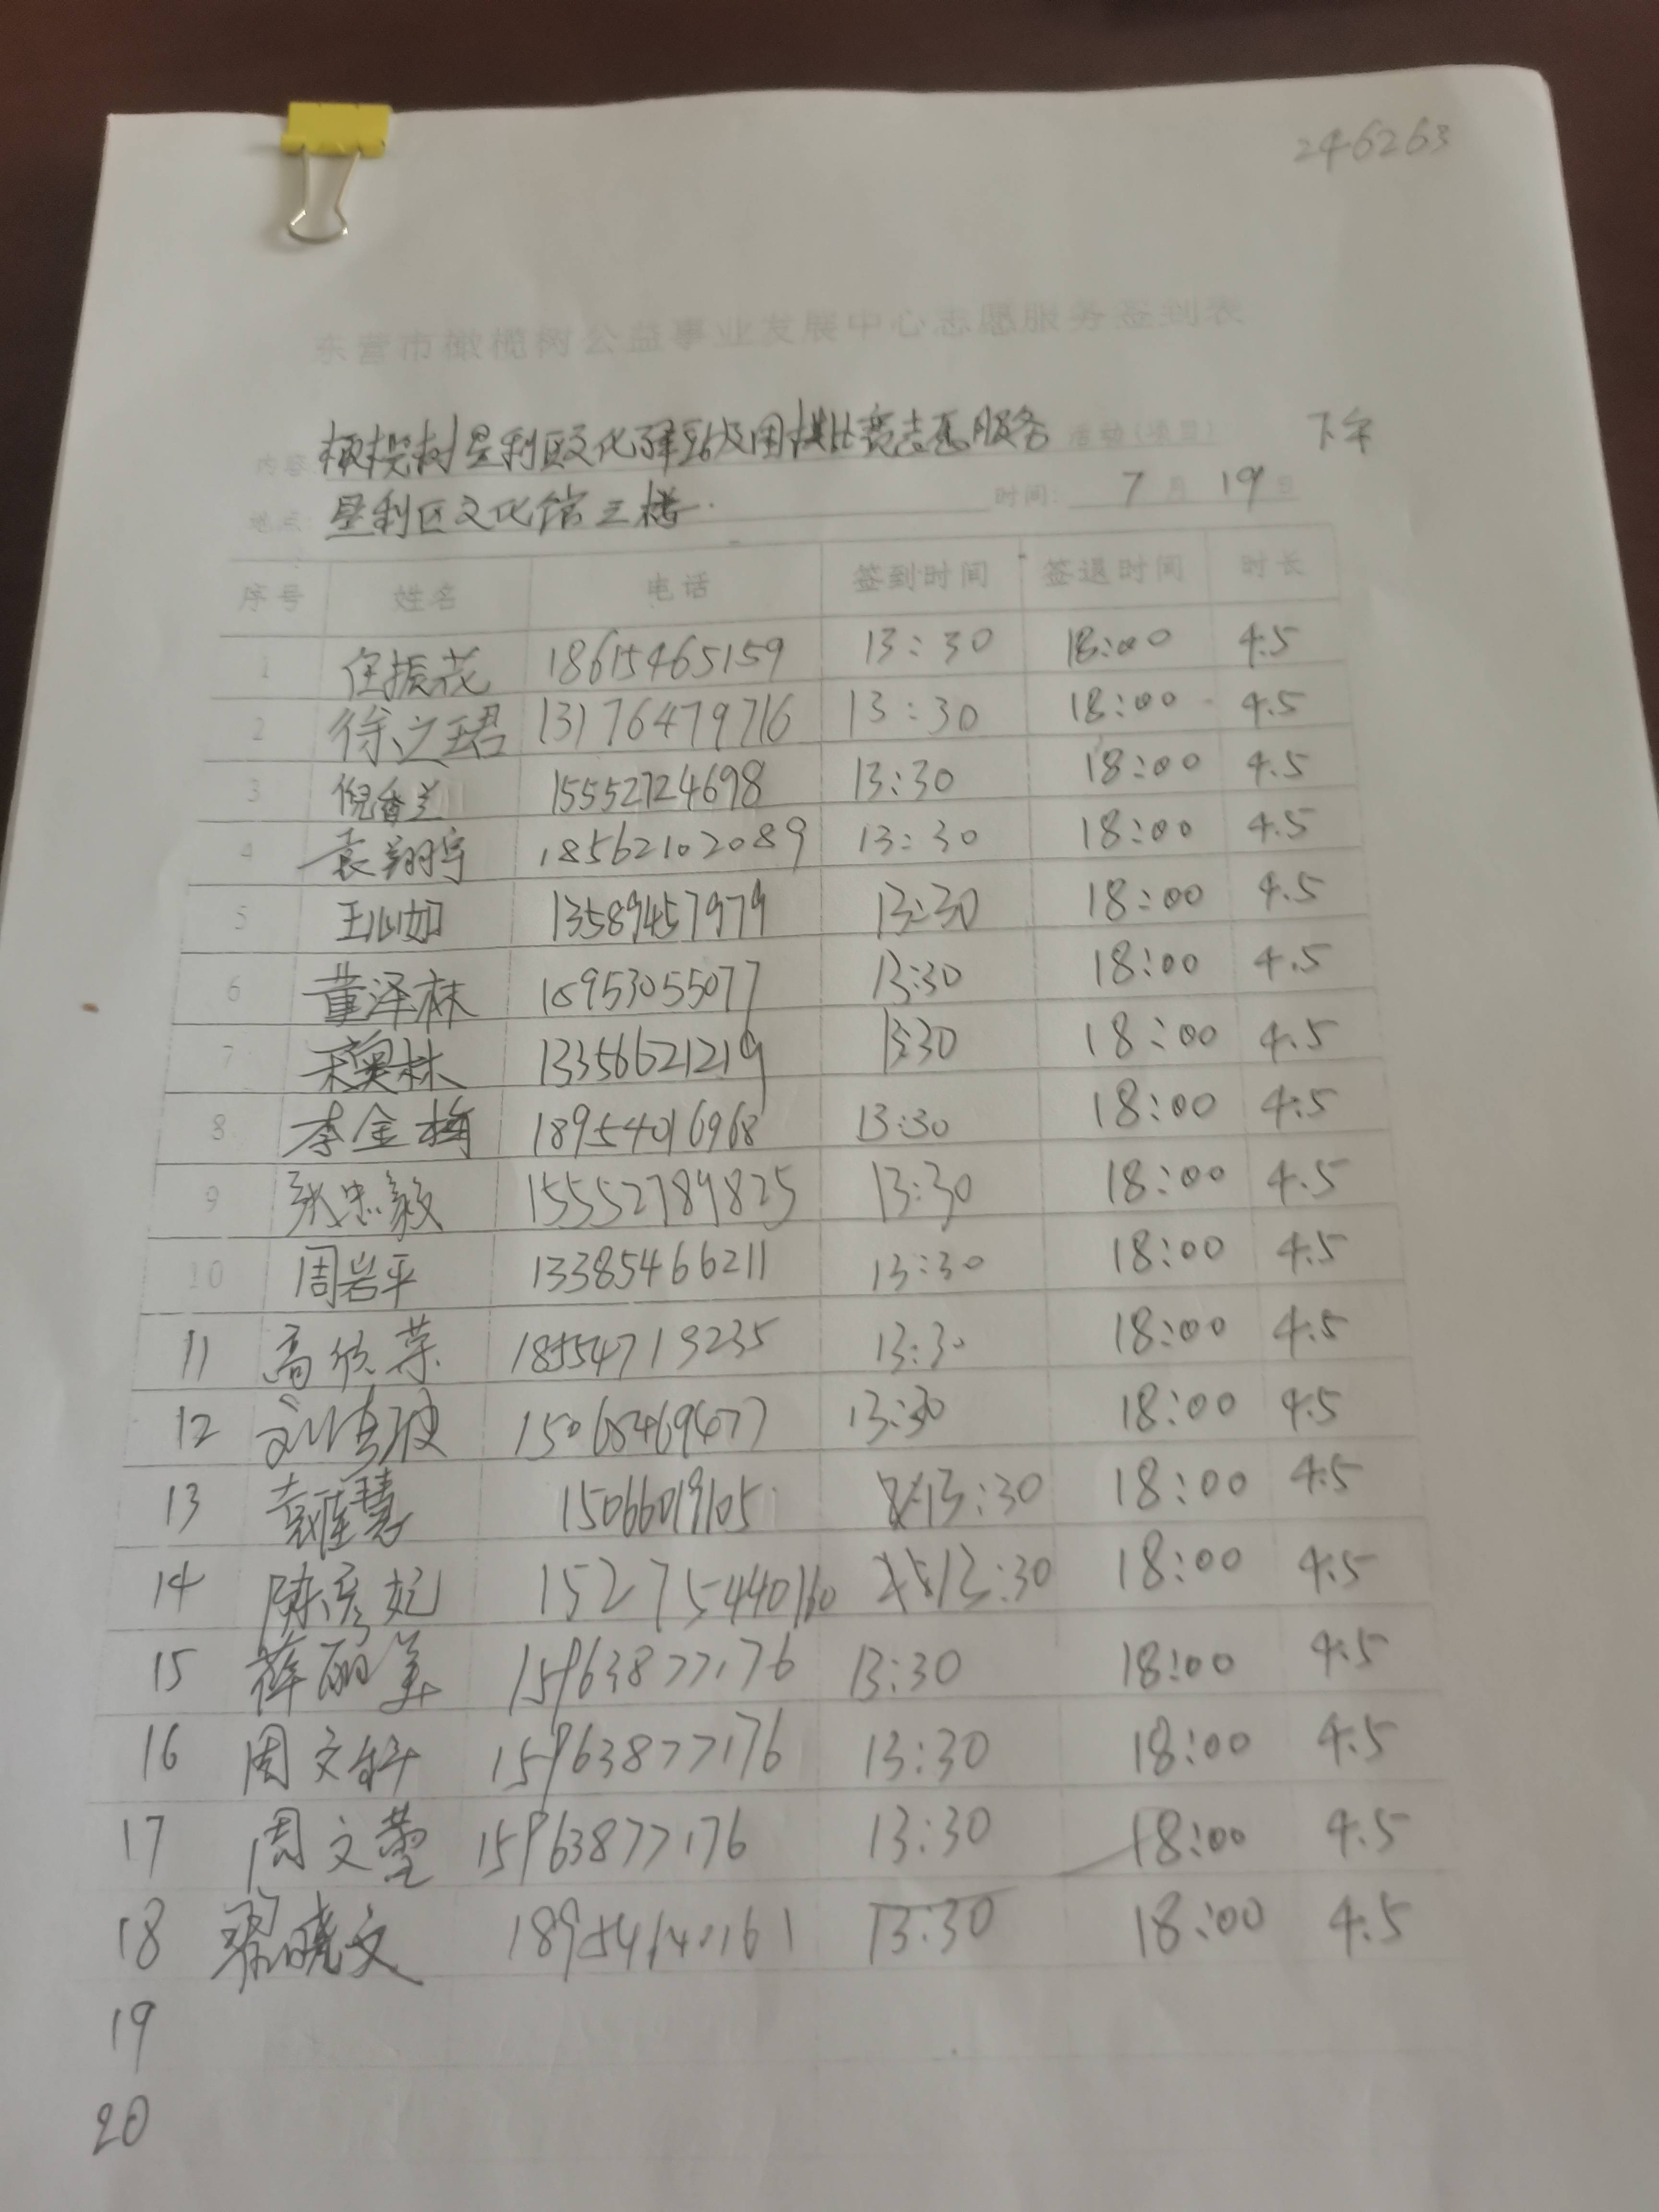 246263
东营市橄榄树公益事业发展中心志愿服务签到表
内容 橄榄树垦利区文化驿站及围棋比赛志愿服务 活动(项目) 下午
地点 垦利区文化馆三楼 时间: 7月19日
序号 姓名 电话 签到时间 签退时间 时长
1 任振花 18615465159 13:30 18:00 4.5
2 徐之珺 13176479716 13:30 18:00 4.5
3 倪香兰 15552724698 13:30 18:00 4.5
4 袁翔宇 18562102089 13:30 18:00 4.5
5 王心如 13589457979 13:30 18:00 4.5
6 董泽林 18953055077 13:30 18:00 4.5
7 宋奥林 13356621219 13:30 18:00 4.5
8 李金梅 18954016968 13:30 18:00 4.5
9 张忠毅 15552789825 13:30 18:00 4.5
10 周岩平 13385466211 13:30 18:00 4.5
11 高 荣 18554719235 13:30 18:00 4.5
12 刘 15068469477 13:30 18:00 4.5
13 袁雅慧 15066019105 13:30 18:00 4.5
14 陈彦妃 13:30 18:00 4.5
15 薛丽美 15963877176 13:30 18:00 4.5
16 周文轩 15963877176 13:30 18:00 4.5
17 周文萱 15963877176 13:30 18:00 4.5
18 翟晓文 18954640161 13:30 18:00 4.5
19
20